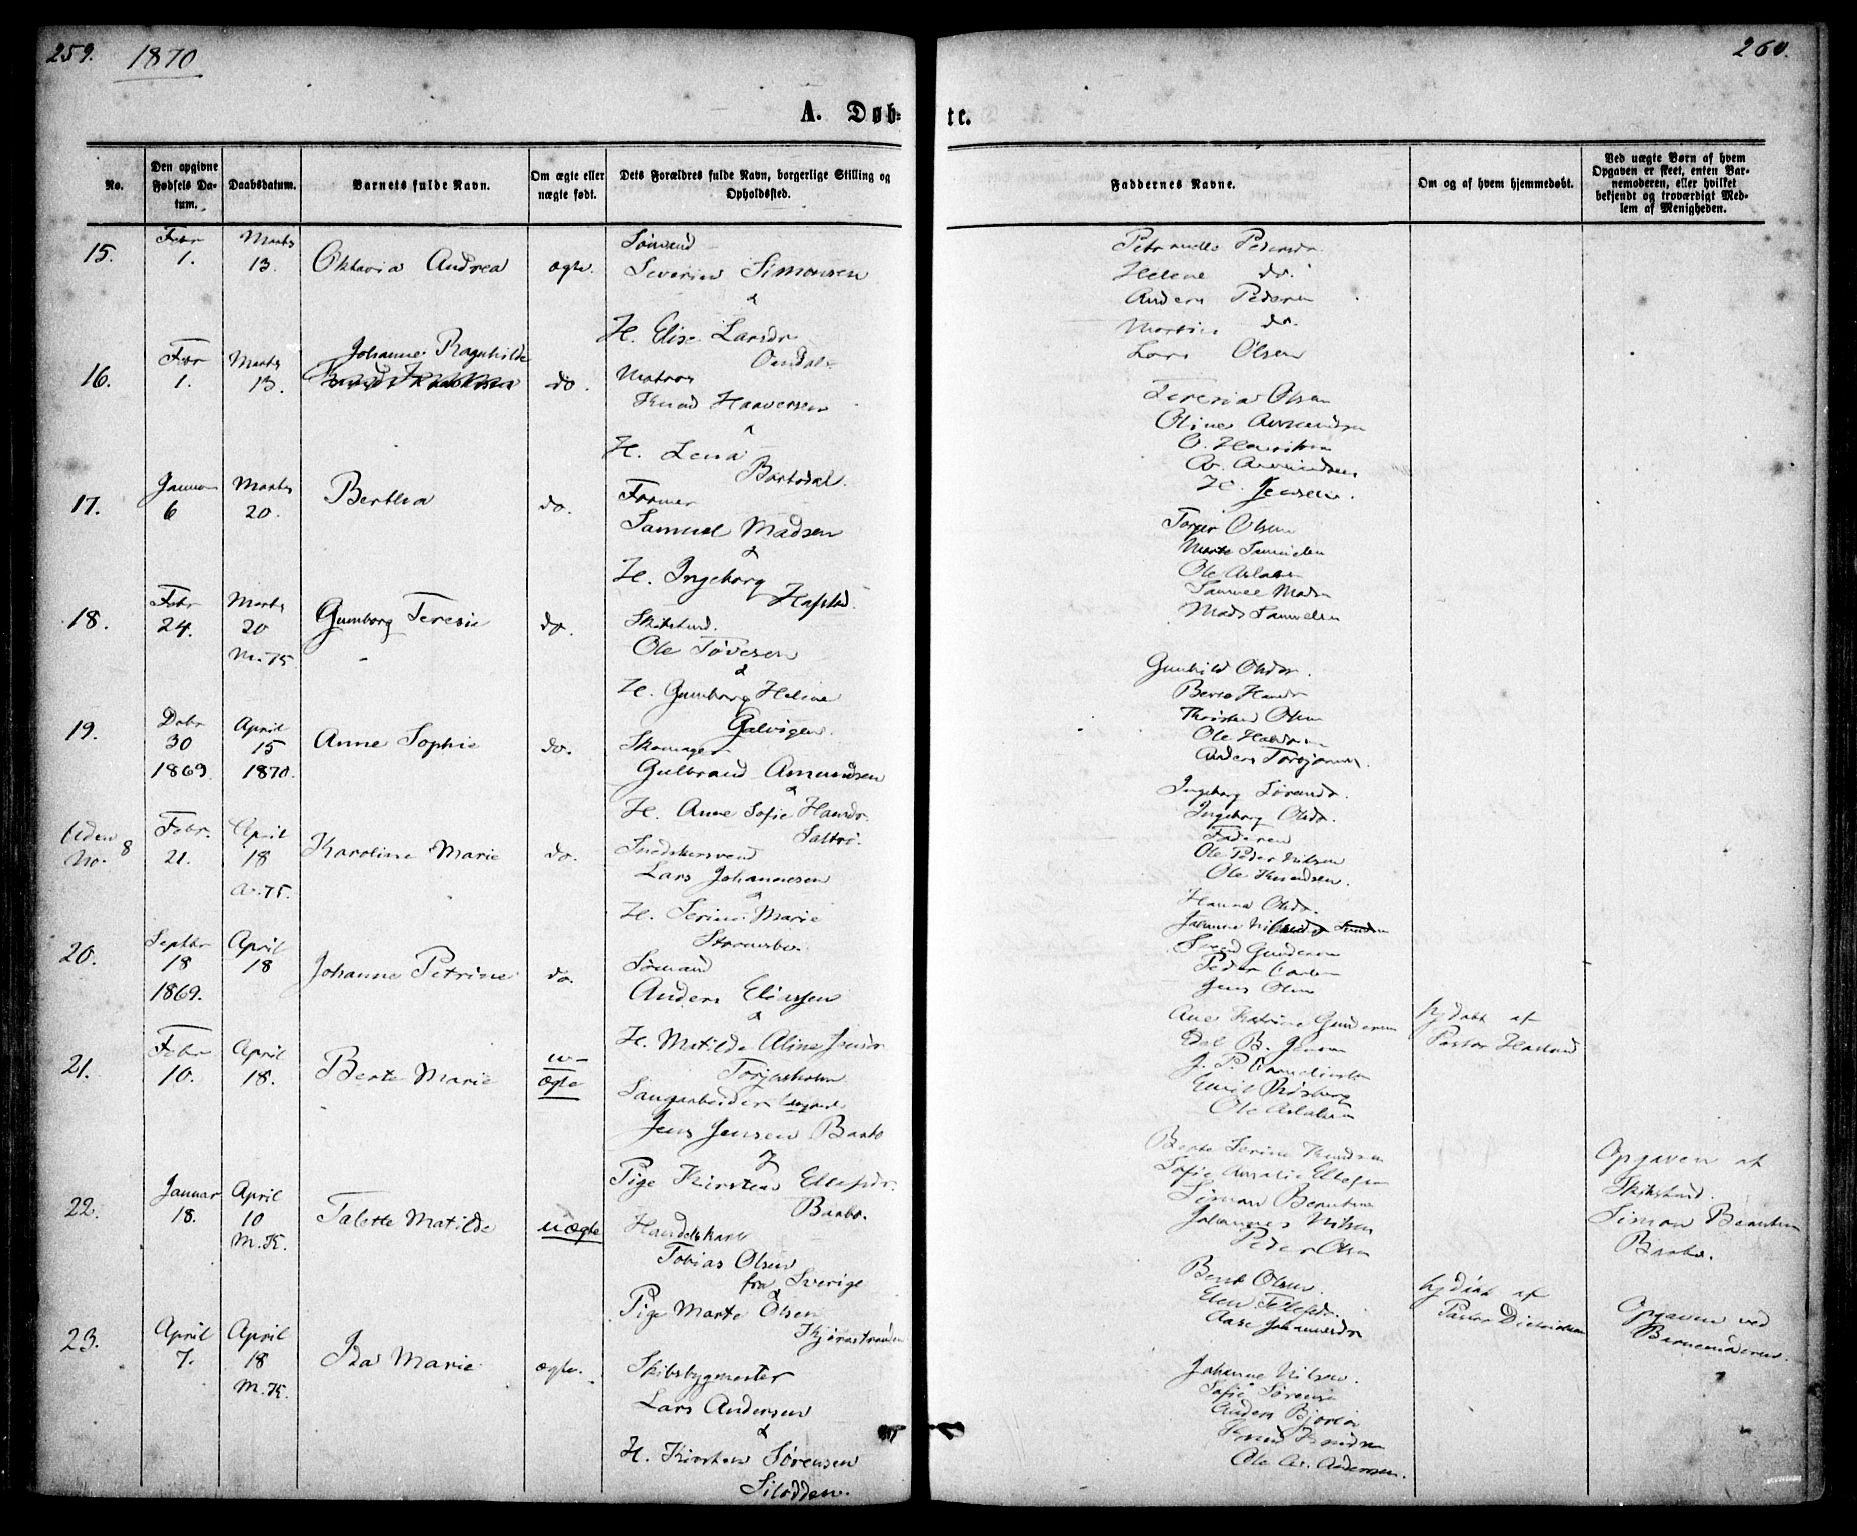 259. 1870
260.
A. Døb-
te.
No.
Den opgivne Fødsels Da-tum.
Daabsdatum.
Barnets fulde Navn.
Om ægte eller uægte født.
Dets Forældres fulde Navn, borgerlige Stilling og Opholdssted.
Faddernes Navne.
Om og af hvem hjemmedøbt.
Ved uægte Børn af hvem Opgaven er skeet, enten Bar-nemoderen, eller hvilket bekjendt og troværdigt Med-lem af Menigheden.
15.
Febr 1.
Marts 13.
Oktavia Andrea
ægte.
Sømand
Severin Simonsen
&
H. Elise Larsdr
Petrandle Pedersdr.
Helene do.
Anders Pedersen
do.
Lars Olsen
16.
Febr 1.
Marts 13.
Johanne Ragnhilde
do.
Matros
Knud Haaversen
H. Lena
Barbodal.
Teresia Olsen
Oline Amundsen
O. Henriksen
A. Amundsen
H. Jensen.
17.
Januar 6
Marts 20.
Berthea
do.
Farmer
Samuel Madsen
&
H. Ingeborg
Hafsted.
Torger Olsen
Marte Samuelsen
Ole Aslaksen
Samuel Mads
Mads Samuelsen
18.
Febr 24.
Marts 20
M. 75
Gunborg Teresie
do.
Skibstmd.
Ole Tovesen
&
H. Gunborg Helene
Galvigen.
Gunhild Olsdr.
Berte Hansdr
Thorsten Olsen
Ole Hansen
Anders Torbjørnsen.
19.
Dcbr 30 1869
April 15 1870.
Anne Sophie
do.
Skomager
Gulbrand Amundsen
&
H. Anne Sofie Hansdr.
Saltrø.
Ingeborg Sørensdr.
Ingeborg Olsdr.
Faderen
Ole Peder Nilsen
Ole Knudsen.
Uden No. 8
Febr. 21.
April 18
A. 75.
Karoline Marie
do.
Snedkersvend
Lars Johannesen
&
H. Serine Marie
Strømsbu.
Hanna Olsdr.
Johanne
Svend Gundersen
Peder Carlsen
Jens Olsen
20.
Septbr 18 1869.
April 18
Johanne Petrine
do.
Sømand
Anders Eliassen
&
H. Matilde Aline Jensdr
Torjusholmen
Ane Katrine Gundersen
Edel B. Jensen
J. P. Corneliussen
Emil
Ole Aslaksen
hjdøbt af
Pastor Haslund
21.
Febr 10.
April 18.
Berte Marie
u-
ægte
Saugarbeider
Jens Jensen Barbo
&
Pige Kirsten Ellefsdr.
Barbo.
Berte Serine Knudsen
Sofie Amalie Ellefsen
Simon Berntsen
Johannes Nilsen
Peder Olsen
Opgaven af
Skibstmd.
Simon Berntsen
Barbo.
22.
Januar 18.
April 10
M. K.
Talette Matilde
uægte
Handelskarl
Tobias Olsen
fra Sverige
&
Pige Marte Olsen
Kjørrestranden
Berte Olsen.
Elen Tellefsdr.
Aase Johannesdr
hjdøbt af
Pastor Dietrichson
Opgaven ved
Barnemoderen.
23.
April 7.
April 18
M. K.
Ida Marie
ægte.
Skibsbygmester
Lars Andersen
&
H. Kirsten Sørensen
Silodden.
Johanne Nilsen.
Sofie Sørensen
Anders Bjorløv
Knud Knudsen
Ole A. Andersen.